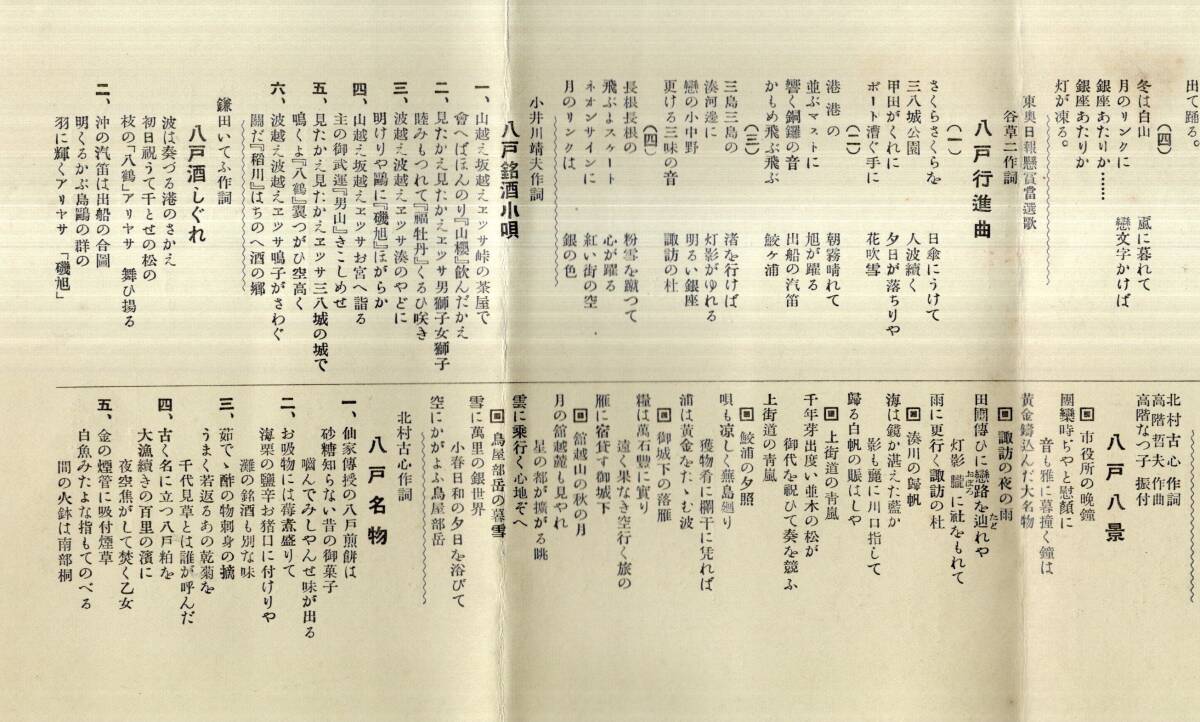 出て踊る。
(四)
冬は白山 嵐に暮れて
月のリンクに 戀文字かけば
銀座あたりか……
銀座あたりか
灯が凍る。
東奥日報懸賞當選歌
谷草二作詞
八戸行進曲
(一)
さくらさくらを 日傘にうけて
三八城公園 人波續く
甲田がくれに 夕日が落ちりや
ボート漕ぐ手に 花吹雪
(二)
港港の 朝霧晴れて
並ぶマストに 旭が躍る
響く銅鑼の音 出船の汽笛
かもめ飛ぶ飛ぶ 鮫ヶ浦
(三)
三島三島の 渚を行けば
湊河邊に 灯影がゆれる
戀の小中野 明るい銀座
更ける三味の音 諏訪の杜
(四)
長根長根の 粉雪を蹴つて
飛ぶよスケート 心が躍る
ネオンサインに 紅い街の空
月のリンクは 銀の色
小井川靖夫作詞
八戸銘酒小唄
一、山越え坂越えエツサ峠の茶屋で
會へばほんのり『山櫻』飲んだかえ
二、見たかえ見たかえエツサ男獅子女獅子
睦みもつれて『福牡丹』くるひ咲き
三、波越え波越えエツサ湊のやどに
明けりや鷗に『磯旭』ほがらか
四、山越え坂越えエツサお宮へ詣る
主の御武運『男山』きこしめせ
五、見たかえ見たかえエツサ三八城の城で
鳴くよ『八鶴』翼つがひ空高く
六、波越え波越えエツサ鳴子がさわぐ
關だ『稻川』はちのへ酒の郷
鎌田いてふ作詞
八戸酒しぐれ
波は奏づる港のさかえ
初日祝うて千とせの松の
枝の「八鶴」アリヤサ 舞ひ揚る
二、沖の汽笛は出船の合圖
明くるかぶ島鷗の群の
羽に輝くアリヤサ 「磯旭」
北村古心作詞
高階哲夫作曲
高階なつ子振付
八戸八景
市役所の晩鐘
團欒時ぢやと慰顔に
音も雅に暮撞く鐘は
黄金鑄込んだ大名物
諏訪の夜の雨
田圃傳ひに戀路を辿れや
灯影朧に社をもれて
雨に更行く諏訪の杜
湊川の歸帆
海は鏡か湛えた藍か
影も麗に川口指して
歸る白帆の賑はしや
上街道の青嵐
千年芽出度い並木の松が
御代を祝ひて奏を競ふ
上街道の青嵐
鮫浦の夕照
唄も凉しく蕪島廻り
獲物肴に欄干に凭れば
浦は黄金をたゝむ波
御城下の落雁
糧は萬石豐に實り
遠く果なき空行く旅の
雁に宿貸す御城下
舘越山の秋の月
月の舘越麓も見やれ
星の都が擴がる眺
雲に乘行く心地ぞへ
鳥屋部岳の暮雪
雪に萬里の銀世界
小春日和の夕日を浴びて
空にかがよふ鳥屋部岳
北村古心作詞
八戸名物
一、仙家傳授の八戸煎餅は
砂糖知らない昔の御菓子
嚙んでみしやんせ味が出る
二、お吸物には莓煮盛りて
海栗の鹽辛お猪口に付けりや
灘の銘酒も別な味
三、茹でゝ酢の物刺身の摘
うまく若返るあの乾菊を
千代見草とは誰が呼んだ
四、古く名に立つ八戸粕を
大漁續きの百里の濱に
夜空焦がして焚く乙女
五、金の煙管に吸付煙草
白魚みたよな指もてのべる
間の火鉢は南部桐